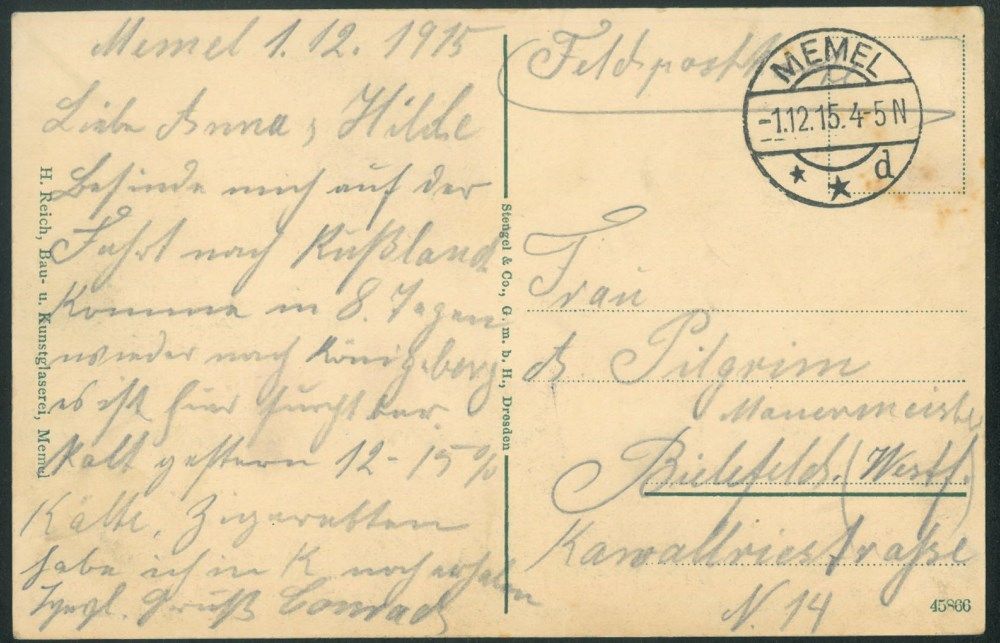 Memel 1.12.1915
Liebe Anna, Hilde
Befinde mich auf der
Fahrt nach Rußland
Komme in 8. Tagen
wieder nach Königsberg
es ist hier furchtbar
kalt gestern 12-15%
Kälte, Zigaretten
habe ich in K noch erhalten
Gruß Conrad
H. Reich, Bau- u. Kunstglaserei, Memel
Stengel & Co., G. m. b. H., Dresden
Feldpost
MEMEL
-1.12.15.4-5N
d
Frau
A Pilgrim
Mauermeister
Bielefeld. (Westf.)
Kawallriestraße
N. 14
45866